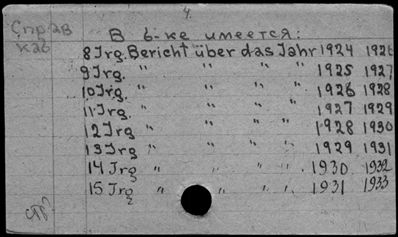 4.
Спр 28
К26
В б-ке имеется:
8 Jrg. Bericht über das Jahr 1924 1926
9 Jrg. " " " " 1925 1927
10 Jrg. " " " " 1926 1928
11 Jrg. " " " " 1927 1929
12 Jrg " " " " 1928 1930
13 Jrg " " " " 1929 1931
14 Jrg " " " " 1930 1932
15 Jrg " " " " 1931 1933